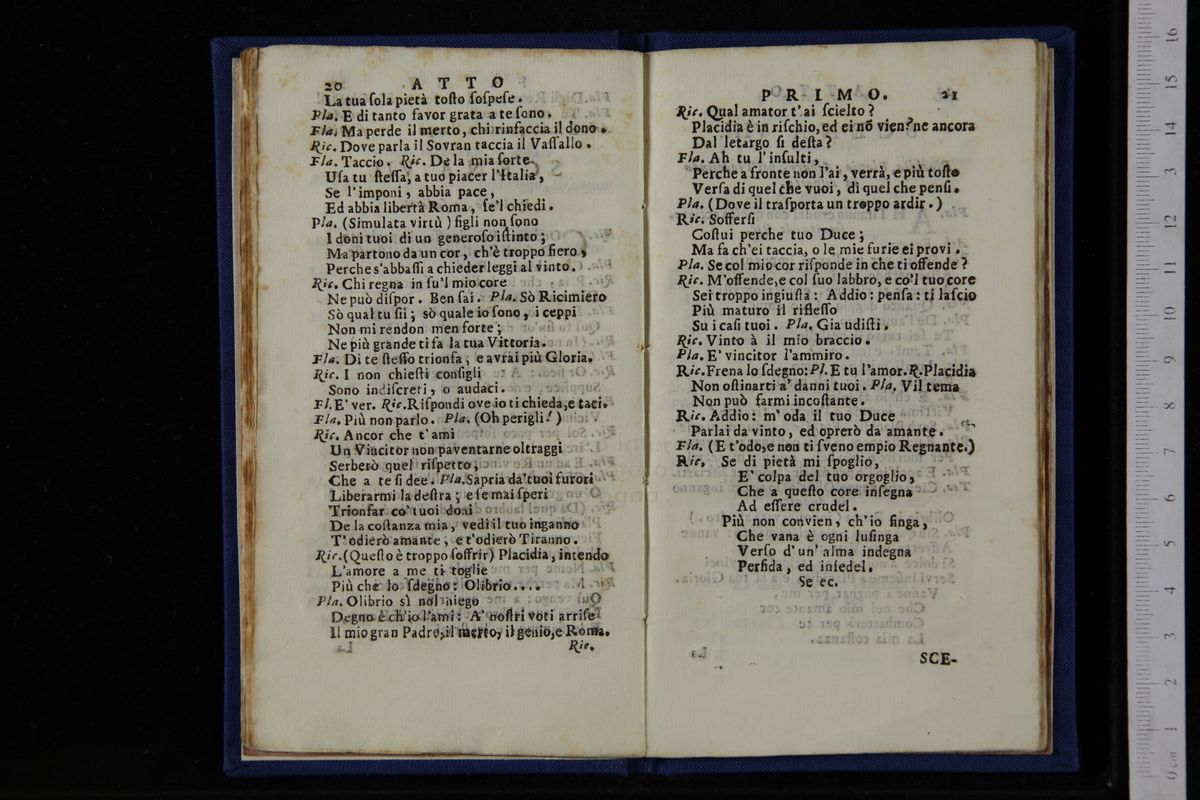 20 A T T O
La tua ſola pietà toſto ſoſpeſe.
Pla. E di tanto favor grata a te ſono.
Fla. Ma perde il merto, chi rinfaccia il dono.
Ric. Dove parla il Sovran taccia il Vaſſallo.
Fla. Taccio. Ric. De la mia ſorte
Uſa tu ſteſſa, a tuo piacer l'Italia,
Se l'imponi, abbia pace,
Ed abbia libertà Roma, ſe'l chiedi.
Pla. (Simulata virtù) figli non ſono
I doni tuoi di un generoſo iſtinto;
Ma partono da un cor, ch'è troppo fiero,
Perche s'abbaſſi a chieder leggi al vinto.
Ric. Chi regna in ſu'l mio core
Ne può diſpor. Ben ſai. Pla. Sò Ricimiero
Sò qual tu ſii; sò quale io ſono, i ceppi
Non mi rendon men forte;
Ne più grande ti fa la tua Vittoria.
Fla. Di te ſteſſo trionfa, e avrai più Gloria.
Ric. I non chieſti conſigli
Sono indiſcreti, o audaci.
Fl. E' ver. Ric. Riſpondi ove io ti chieda, e taci.
Fla. Più non parlo. Pla. (Oh perigli!)
Ric. Ancor che t'ami
Un Vincitor non paventarne oltraggi
Serberò quel riſpetto,
Che a te ſi dee. Pla. Sapria da'tuoi furori
Liberarmi la deſtra; e ſe mai ſperi
Trionfar co' tuoi doni
De la coſtanza mia, vedi il tuo inganno
T'odierò amante, e t'odierò Tiranno.
Ric. (Queſto è troppo ſoffrir) Placidia, intendo
L'amore a me ti toglie
Più che lo ſdegno: Olibrio....
Pla. Olibrio sì nol niego
Degno è ch'io l'ami: A' noſtri voti arriſe
Il mio gran Padre, il merto, il genio, e Roma.
Ric.
P R I M O. 21
Ric. Qual amator t'ai ſcielto?
Placidia è in riſchio, ed ei nõ vien? ne ancora
Dal letargo ſi deſta?
Fla. Ah tu l'inſulti,
Perche a fronte non l'ai, verrà, e più toſto
Verſa di quel che vuoi, di quel che penſi.
Pla. (Dove il traſporta un troppo ardir.)
Ric. Sofferſi
Coſtui perche tuo Duce;
Ma fa ch'ei taccia, o le mie furie ei provi.
Pla. Se col mio cor riſponde in che ti offende?
Ric. M'offende, e col ſuo labbro, e co'l tuo core
Sei troppo ingiuſta: Addio: penſa: ti laſcio
Più maturo il rifleſſo
Su i caſi tuoi. Pla. Gia udiſti.
Ric. Vinto à il mio braccio.
Pla. E' vincitor l'ammiro.
Ric. Frena lo ſdegno: Pl. E tu l'amor. R. Placidia
Non oſtinarti a' danni tuoi. Pla, Vil tema
Non può farmi incoſtante.
Ric. Addio: m'oda il tuo Duce
Parlai da vinto, ed oprerò da amante.
Fla. (E t'odo, e non ti ſveno empio Regnante.)
Ric. Se di pietà mi ſpoglio,
E' colpa del tuo orgoglio,
Che a queſto core inſegna
Ad eſſere crudel.
Più non convien, ch'io finga,
Che vana è ogni luſinga
Verſo d'un' alma indegna
Perfida, ed infedel.
Se ec.
SCE-